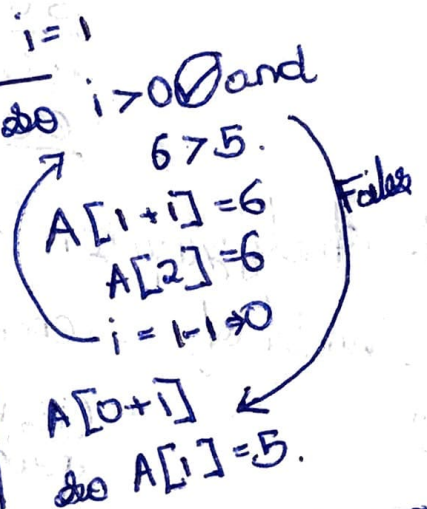 i = 1
so i > 0 and
6 > 5.
A[1+1] = 6
A[2] = 6
i = 1-1 ⇒ 0
Fails
A[0+1]
so A[1] = 5.